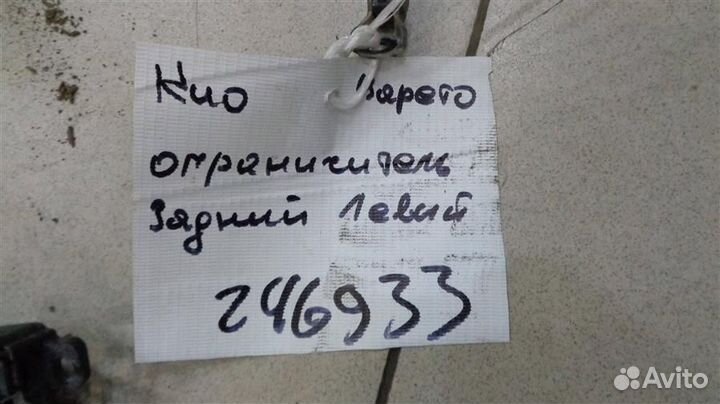 Кио Царето
ограничитель
Задний Левий
246933
Avito